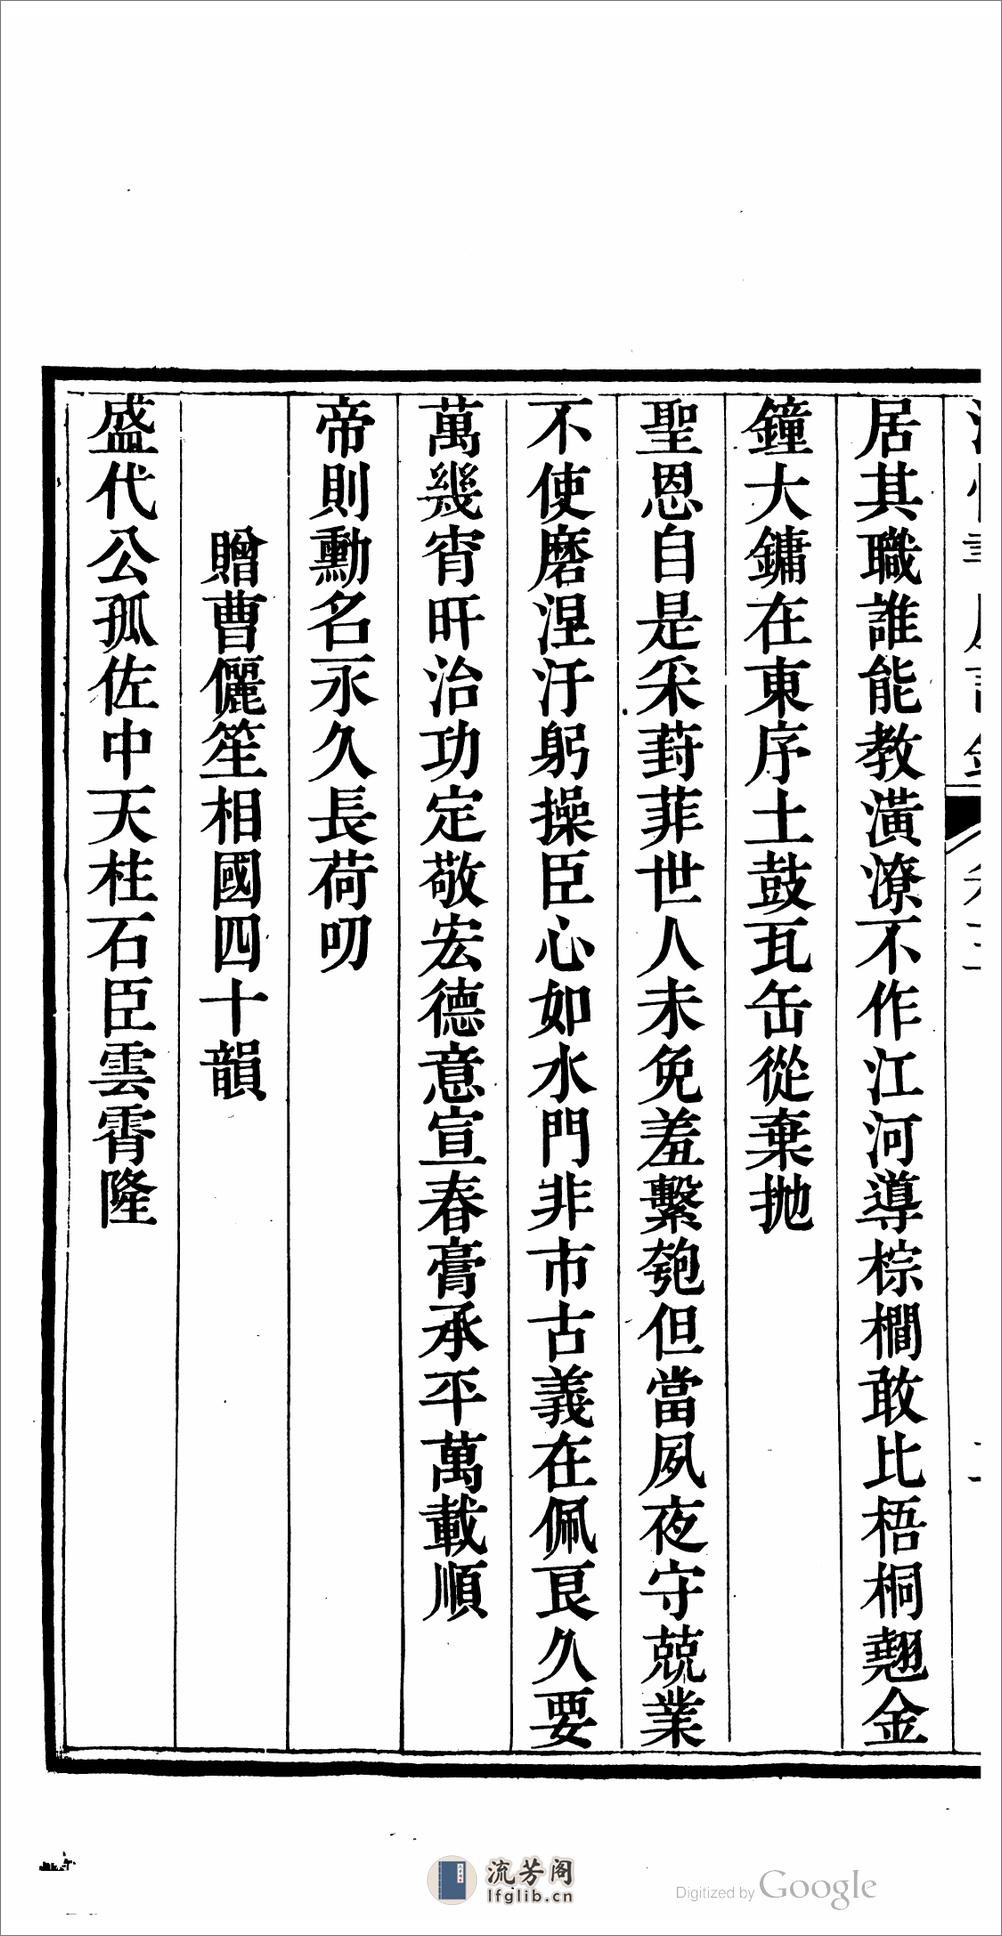 居其職誰能教潢潦不作江河導棕櫚敢比梧桐翹金
鐘大鏞在東序土鼓瓦缶從棄拋
聖恩自是采葑菲世人未免羞繫匏但當夙夜守兢業
不使磨涅汙躬操臣心如水門非市古義在佩艮久要
萬幾宵旰治功定敬宏德意宣春膏承平萬載順
帝則勳名永久長荷叨
贈曹儷笙相國四十韻
盛代公孤佐中天柱石臣雲霄隆
流芳阁
lfglib.cn
Digitized by Google